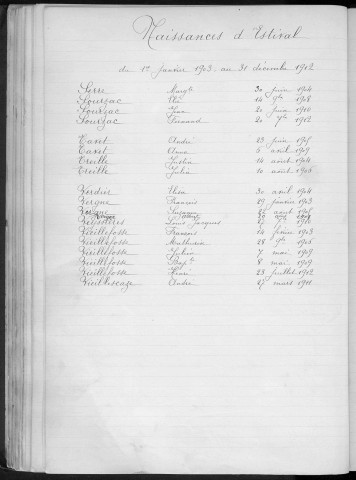 Naissances d'Estival
du 1er janvier 1903 au 31 décembre 1912
Serre Marg.te 30 juin 1904
Sourzac 14 9bre 1908
Sourzac Jean 21 juin 1910
Sourzac Fernand 20 7bre 1912
Tavet André 23 juin 1905
Tavet Anna 5 avril 1909
Treille Justin 14 août 1904
Treille Julia 10 août 1906
Verdier 30 avril 1904
Vergne François 29 janvier 1903
Vergne Suzanne avril
Louis Jacques
Vieillefosse François 14 février 1903
Vieillefosse Mathurin 28 9bre 1905
Vieillefosse Julien 7 mai 1909
Vieillefosse Bapt. 8 mai 1909
Vieillefosse Henri 28 juillet 1912
Vieillescaze André 17 mars 1911